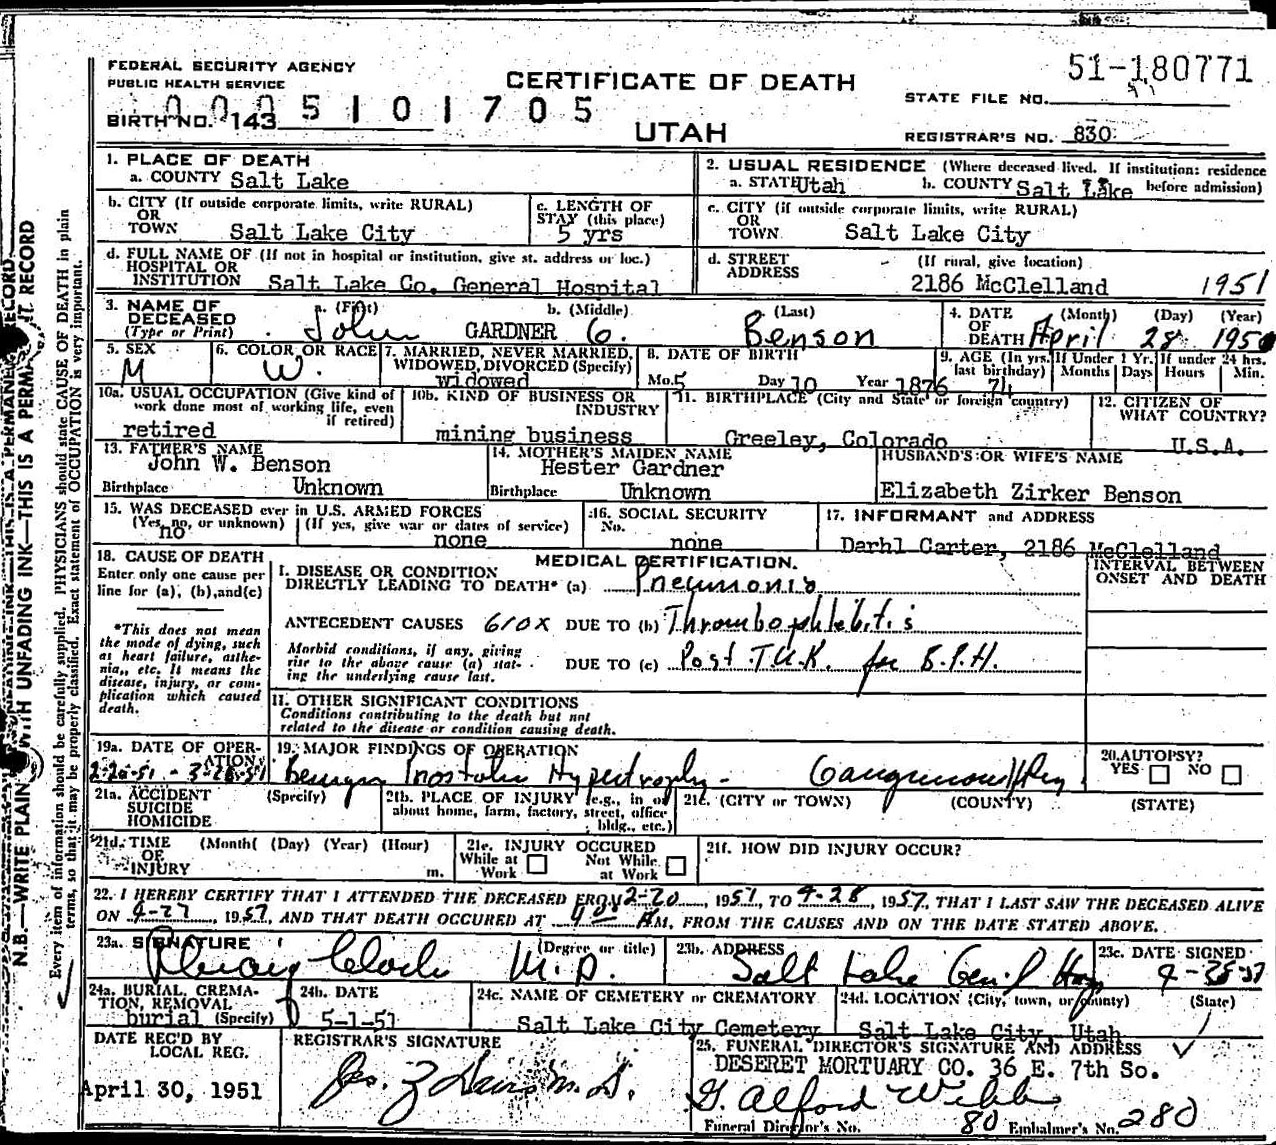 51-180771
FEDERAL SECURITY AGENCY
PUBLIC HEALTH SERVICE
CERTIFICATE OF DEATH
STATE FILE NO.
0005101705
BIRTH NO. 143
UTAH
REGISTRAR'S NO. 830
1. PLACE OF DEATH
a. COUNTY Salt Lake
2. USUAL RESIDENCE (Where deceased lived. If institution: residence before admission)
a. STATE Utah b. COUNTY Salt Lake
b. CITY (If outside corporate limits, write RURAL)
OR
TOWN Salt Lake City
c. LENGTH OF
STAY (this place)
5 yrs
c. CITY (if outside corporate limits, write RURAL)
OR
TOWN Salt Lake City
d. FULL NAME OF (If not in hospital or institution, give st. address or loc.)
HOSPITAL OR
INSTITUTION Salt Lake Co. General Hospital
d. STREET (If rural, give location)
ADDRESS
2186 McClelland
1951
3. NAME OF
DECEASED
(Type or Print)
a. (First) b. (Middle) c. (Last)
John GARDNER G. Benson
4. DATE (Month) (Day) (Year)
OF
DEATH April 28 1950
5. SEX
M
6. COLOR OR RACE
W.
7. MARRIED, NEVER MARRIED,
WIDOWED, DIVORCED (Specify)
widowed
8. DATE OF BIRTH
Mo. 5 Day 10 Year 1876
9. AGE (In yrs. last birthday) 74
If Under 1 Yr.
Months Days
If under 24 hrs.
Hours Min.
10a. USUAL OCCUPATION (Give kind of
work done most of working life, even
if retired)
retired
10b. KIND OF BUSINESS OR
INDUSTRY
mining business
11. BIRTHPLACE (City and State or foreign country)
Greeley, Colorado
12. CITIZEN OF
WHAT COUNTRY?
U.S.A.
13. FATHER'S NAME
John W. Benson
Birthplace Unknown
14. MOTHER'S MAIDEN NAME
Hester Gardner
Birthplace Unknown
HUSBAND'S OR WIFE'S NAME
Elizabeth Zirker Benson
15. WAS DECEASED ever in U.S. ARMED FORCES
(Yes, no, or unknown) (If yes, give war or dates of service)
no none
16. SOCIAL SECURITY
No.
none
17. INFORMANT and ADDRESS
Darhl Carter, 2186 McClelland
18. CAUSE OF DEATH
Enter only one cause per
line for (a), (b), and (c)
*This does not mean
the mode of dying, such
as heart failure, asthe-
nia, etc. It means the
disease, injury, or com-
plication which caused
death.
MEDICAL CERTIFICATION.
I. DISEASE OR CONDITION
DIRECTLY LEADING TO DEATH* (a) Pneumonia
ANTECEDENT CAUSES 610X DUE TO (b) Thrombophlebitis
Morbid conditions, if any, giving
rise to the above cause (a) stat-
ing the underlying cause last.
DUE TO (c) Post T.U.R. for B.P.H.
INTERVAL BETWEEN
ONSET AND DEATH
II. OTHER SIGNIFICANT CONDITIONS
Conditions contributing to the death but not
related to the disease or condition causing death.
19a. DATE OF OPER-
ATION
19. MAJOR FINDINGS OF OPERATION
Benign Prostatic Hypertrophy -
20. AUTOPSY?
YES NO
21a. ACCIDENT (Specify)
SUICIDE
HOMICIDE
21b. PLACE OF INJURY (e.g., in or
about home, farm, factory, street, office
bldg., etc.)
21c. (CITY or TOWN) (COUNTY) (STATE)
21d. TIME (Month( (Day) (Year) (Hour)
OF
INJURY m.
21e. INJURY OCCURED
While at Work Not While at Work
21f. HOW DID INJURY OCCUR?
22. I HEREBY CERTIFY THAT I ATTENDED THE DECEASED FROM 2-20, 1951, TO 4-28, 1951, THAT I LAST SAW THE DECEASED ALIVE
ON 4-27, 1951, AND THAT DEATH OCCURED AT 400 A M, FROM THE CAUSES AND ON THE DATE STATED ABOVE.
23a. SIGNATURE (Degree or title)
M.D.
23b. ADDRESS
Salt Lake Gen'l Hosp
23c. DATE SIGNED
24a. BURIAL, CREMA-
TION, REMOVAL
burial (Specify)
24b. DATE
5-1-51
24c. NAME OF CEMETERY or CREMATORY
Salt Lake City Cemetery
24d. LOCATION (City, town, or county) (State)
Salt Lake City, Utah
DATE REC'D BY
LOCAL REG.
April 30, 1951
REGISTRAR'S SIGNATURE
25. FUNERAL DIRECTOR'S SIGNATURE AND ADDRESS
DESERET MORTUARY CO. 36 E. 7th So.
G. Alford Webb
Funeral Director's No. 80 Embalmer's No. 280
N.B.—WRITE PLAIN WITH UNFADING INK—THIS IS A PERMANENT RECORD
Every item of information should be carefully supplied. PHYSICIANS should state CAUSE OF DEATH in plain
terms, so that it may be properly classified. Exact statement of OCCUPATION is very important.